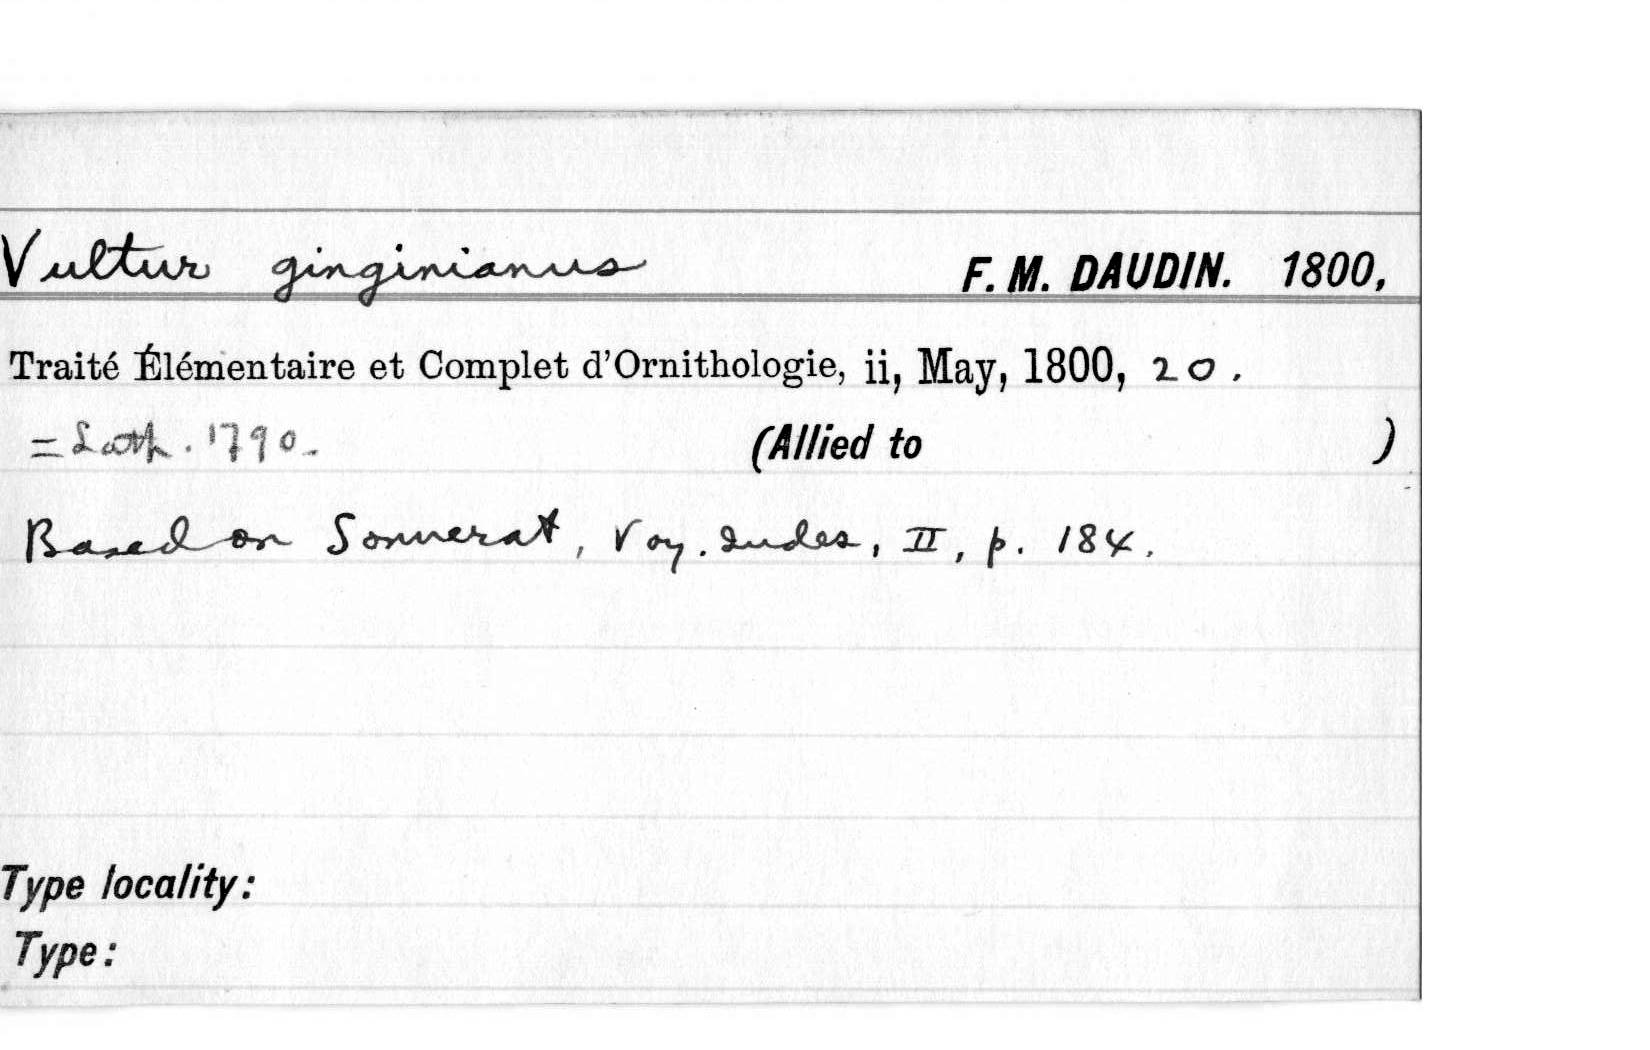 Vultur ginginianus F. M. DAUDIN. 1800,
Traité Élémentaire et Complet d'Ornithologie, ii, May, 1800, 20.
= Lath. 1790. (Allied to )
Based on Sonnerat, Voy. Indes, II, p. 184.
Type locality:
Type: